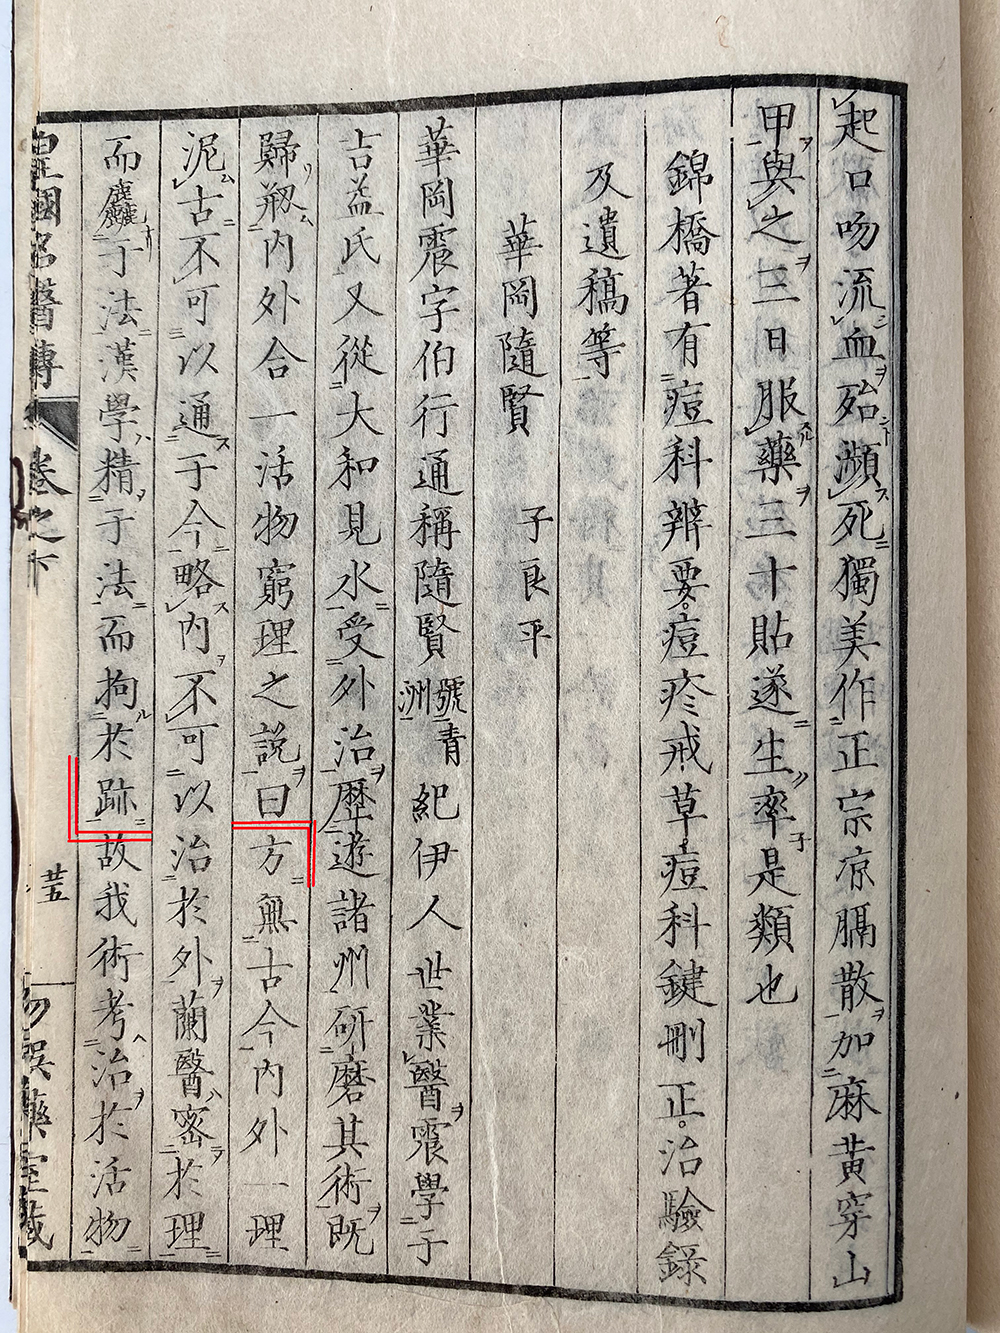 起口吻流血殆瀕死獨美作正宗凉膈散加麻黄穿山
甲與之三日服藥三十貼遂生率是類也
錦橋著有痘科辨要。痘疹戒草痘科鍵刪正。治驗錄
及遺稿等
華岡隨賢 子良平
華岡震字伯行通稱隨賢號青洲紀伊人世業醫震學于
吉益氏又從大和見水受外治歷遊諸州研磨其術既
歸剏内外合一活物窮理之說曰方無古今内外一理
泥古不可以通于今略内不可以治於外蘭醫密於理
而麤于法漢學精于法而拘於跡故我術考治於活物
皇國名醫傳 卷之下 廿五